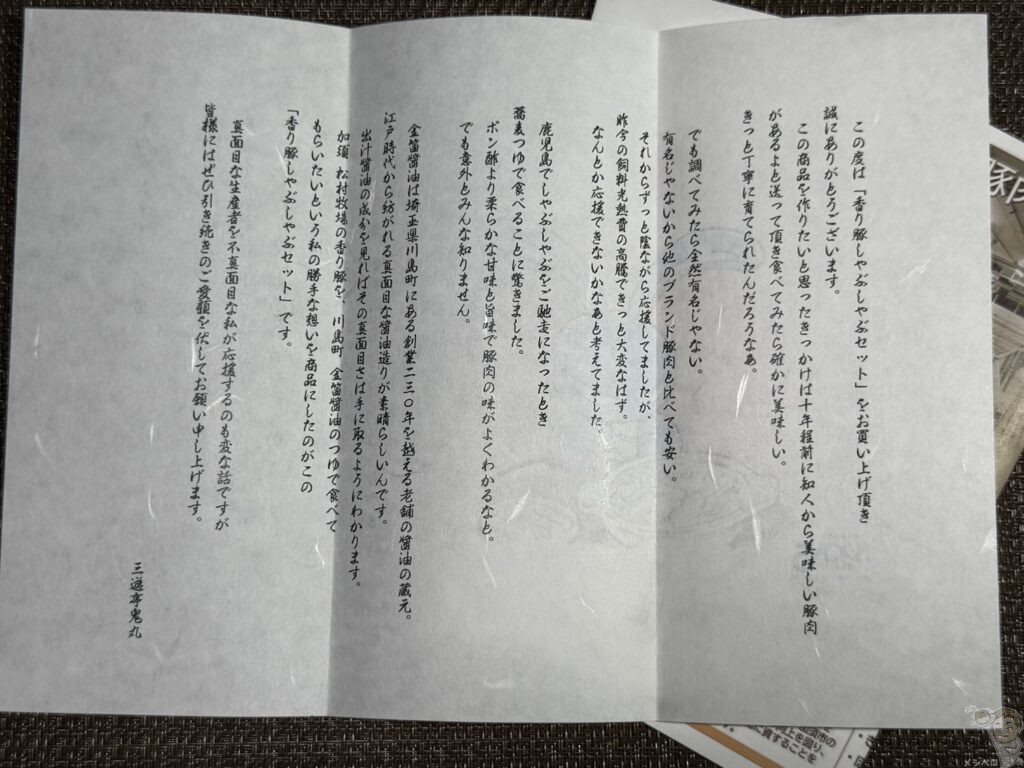 この度は「香り豚しゃぶしゃぶセット」をお買い上げ頂き
誠にありがとうございます。
この商品を作りたいと思ったきっかけは十年程前に知人から美味しい豚肉
があるよと送って頂き食べてみたら確かに美味しい。
きっと丁寧に育てられたんだろうなあ。
でも調べてみたら全然有名じゃない。
有名じゃないから他のブランド豚肉と比べても安い。
それからずっと陰ながら応援してましたが、
昨今の飼料光熱費の高騰できっと大変なはず。
なんとか応援できないかなあと考えてました。
鹿児島でしゃぶしゃぶをご馳走になったとき
蕎麦つゆで食べることに驚きました。
ポン酢より柔らかな甘味と旨味で豚肉の味がよくわかるなと。
でも意外とみんな知りません。
金笛醤油は埼玉県川島町にある創業二三〇年を越える老舗の醤油の蔵元。
江戸時代から紡がれる真面目な醤油造りが素晴らしいんです。
出汁醤油の成分を見ればその真面目さは手に取るようにわかります。
加須 松村牧場の香り豚を、川島町 金笛醤油のつゆで食べて
もらいたいという私の勝手な想いを商品にしたのがこの
「香り豚しゃぶしゃぶセット」です。
真面目な生産者を不真面目な私が応援するのも変な話ですが
皆様にはぜひ引き続きのご愛顧を伏してお願い申し上げます。
三遊亭鬼丸